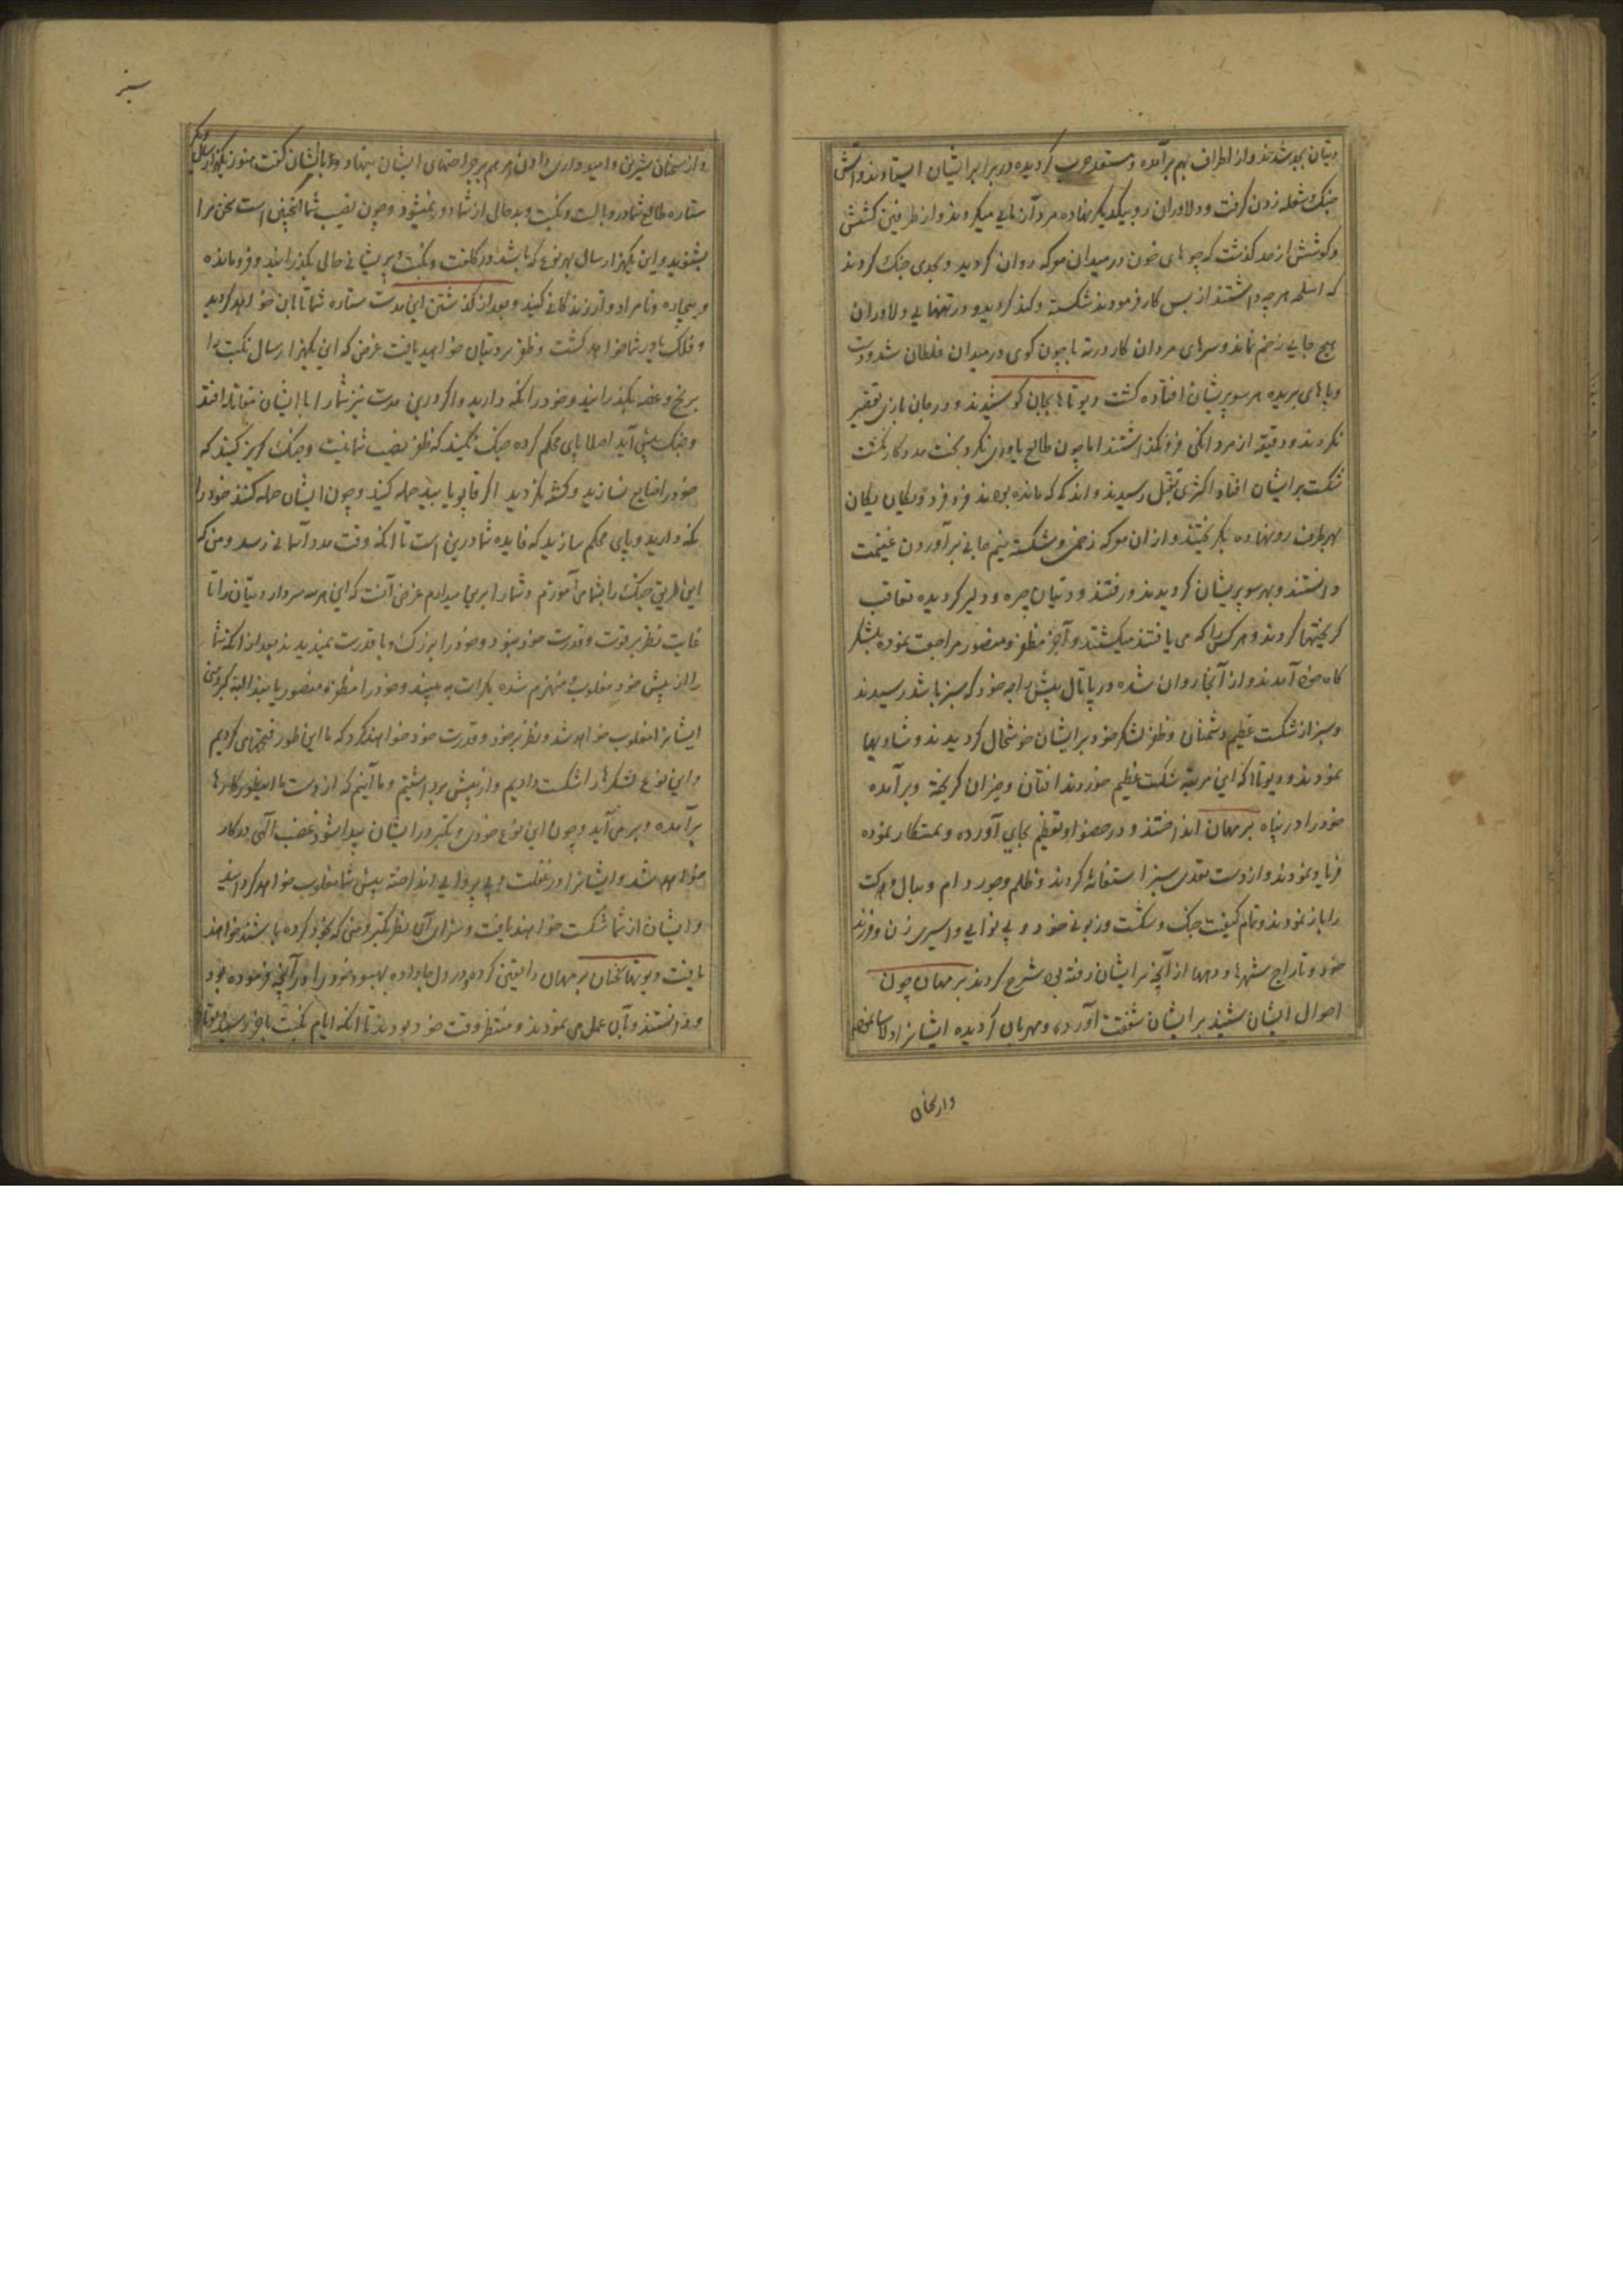 دیتان بجد شدند و از اطراف بهم برآمده و مستعد حرب گردیده در برابر ایشان ایستادند و آتش
جنک شعله زدن گرفت و دلاوران رو بیکدیگر نهاده مردآزمایی میکردند و از طرفین کشش
و کوشش از حد گذشت که جوهای خون در میدان معرکه روان گردید و بحدی جنک کردند
که اسلحه هر چه داشتند از بس کار فرمودند شکسته و کند گردید و در تنهای دلاوران
هیچ جایی زخم نماند و سرهای مردان کار در ته پا چون گوی در میدان غلطان شد و دست
و پاهای بریده هر سو پریشان افتاده گشت دیوتاها بجان کوشیدند و در جان بازی تقصیر
نکردند و دقیقه از مردانگی فرو نگذاشتند اما چون طالع یاوری نکرد و بخت مددگار نگشت
شکست بر ایشان افتاد اکثری بقتل رسیدند و اندکی که مانده بودند فرد فرد و یکان یکان
بهر طرف رو نهاده بگریختند و از ان معرکه زخمی و شکسته نیم جانی برآوردن غنیمت
دانستند و بهر سو پریشان گردیدند و رفتند و دیتان چیره و دلیر گردیده تعاقب
گریختها کردند و هر کس را که می یافتند میکشتند و آخر مظفر و منصور مراجعت نموده بلشکر
گاه خود آمدند و از آنجا روان شده در پاتال پیش راجه خود که سنبر باشد رسیدند
و سنبر از شکست عظیم دشمنان و ظفر لشکر خود بر ایشان خوشحال گردیدند و شادیها
نمودند و دیوتا که این مرتبه شکست عظیم خوردند افتان و خیزان گریخته و برآمده
خود را در پناه برمهان انداختند و در حضور او تعظیم بجای آورده و نمشکار نموده
فریاد نمودند و از دست تعدی سنبر استغاثه کردند و ظلم و جور دام و بیال و کت
را باز نمودند و تمام کیفیت جنک و شکست و زبونی خود و بی نوایی و اسیری زن و فرزند
خود و تاراج شهرها و دهها از آنچه بر ایشان رفته بود شرح کردند برمهان چون
احوال ایشان شنید بر ایشان شفقت آورده و مهربان گردیده ایشانرا دلاسا نمود
و از سخنان
سنبر
و از سخنان شیرین و امیدواری دادن مرهم بر جراحتهای ایشان بنهاد و بایشان گفت هنوز یکهزار سال دیگر
ستاره طالع شما در وبالست و نکبت و بدحالی از شما دور نمیشود و چون نصیب شما اینچنین است سخن مرا
بشنوید و این یکهزار سال بهر نوع که باشد در کلفت و نکبت و پریشانی حالی بگذرانید و فرومانده
و بیچاره و نامراد وار زندگانی کنید و بعد از گذشتن این مدت ستاره شما تابان خواهد گردید
و فلک یاور شما خواهد گشت و ظفر بر دیتان خواهید یافت غرض که این یکهزار سال نکبت را
برنج و غصه بگذرانید و خود را نگه دارید و اگر درین مدت نیز شما را با ایشان مقابله افتد
و جنک پیش آید اصلا پای محکم کرده جنک نکنید که ظفر نصیب شما نیست و جنک گریز کنید که
خود را ضایع نسازید و کشته نگردید اگر قابو یابید حمله کنید و چون ایشان حمله کنند خود را
نگه دارید و پای محکم سازید که فایده شما درین است تا آنکه وقت مدد آسمانی رسد و من که
این طریق جنک را بشما می آموزم و شما را برپا میدارم غرض آنست که این هر سه سردار دیتان را تا
غایت نظر بر قوت و قدرت خود نبود و خود را بزرک و با قدرت نمیدیدند بعد از آنکه شما
را از پیش خود مغلوب و منهزم شده بکرات به بینند و خود را مظفر و منصور یابند البته کبر و منی
ایشانرا مغلوب خواهد شد و نظر بر خود و قدرت خود خواهند کرد که ما این طور فتحهای کردیم
و این نوع لشکرها را شکست دادیم و از پیش برداشتیم و ما آنیم که از دست ما اینطور کارها
برآمده و بر می آید و چون این نوع خودی و تکبر در ایشان پیدا شود غضب الهی در کار
خواهد شد و ایشانرا در غفلت و بی پروایی انداخته پیش شما مغلوب خواهد گردانید
و ایشان از شما شکست خواهند یافت و سزای آن نظر تکبر و منی که بخود کرده باشند خواهند
یافت دیوتها سخنان برمهان را یقین کرده در دل جا داده بهبود خود را در آنچه فرموده بود
دانستند و بآن عمل می نمودند و منتظر وقت خود بودند تا آنکه ایام نکبت باخر رسید و دیوتا